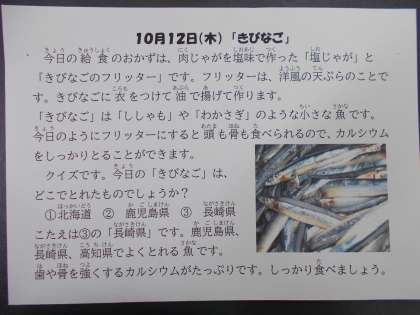 10月12日(木)「きびなご」
今日の給食のおかずは、肉じゃがを塩味で作った「塩じゃが」と
「きびなごのフリッター」です。フリッターは、洋風の天ぷらのことで
す。きびなごに衣をつけて油で揚げて作ります。
「きびなご」は「ししゃも」や「わかさぎ」のような小さな魚です。
今日のようにフリッターにすると頭も骨も食べられるので、カルシウム
をしっかりとることができます。
クイズです。今日の「きびなご」は、
どこでとれたものでしょうか?
①北海道 ② 鹿児島県 ③ 長崎県
こたえは③の「長崎県」です。鹿児島県、
長崎県、高知県でよくとれる魚です。
歯や骨を強くするカルシウムがたっぷりです。しっかり食べましょう。